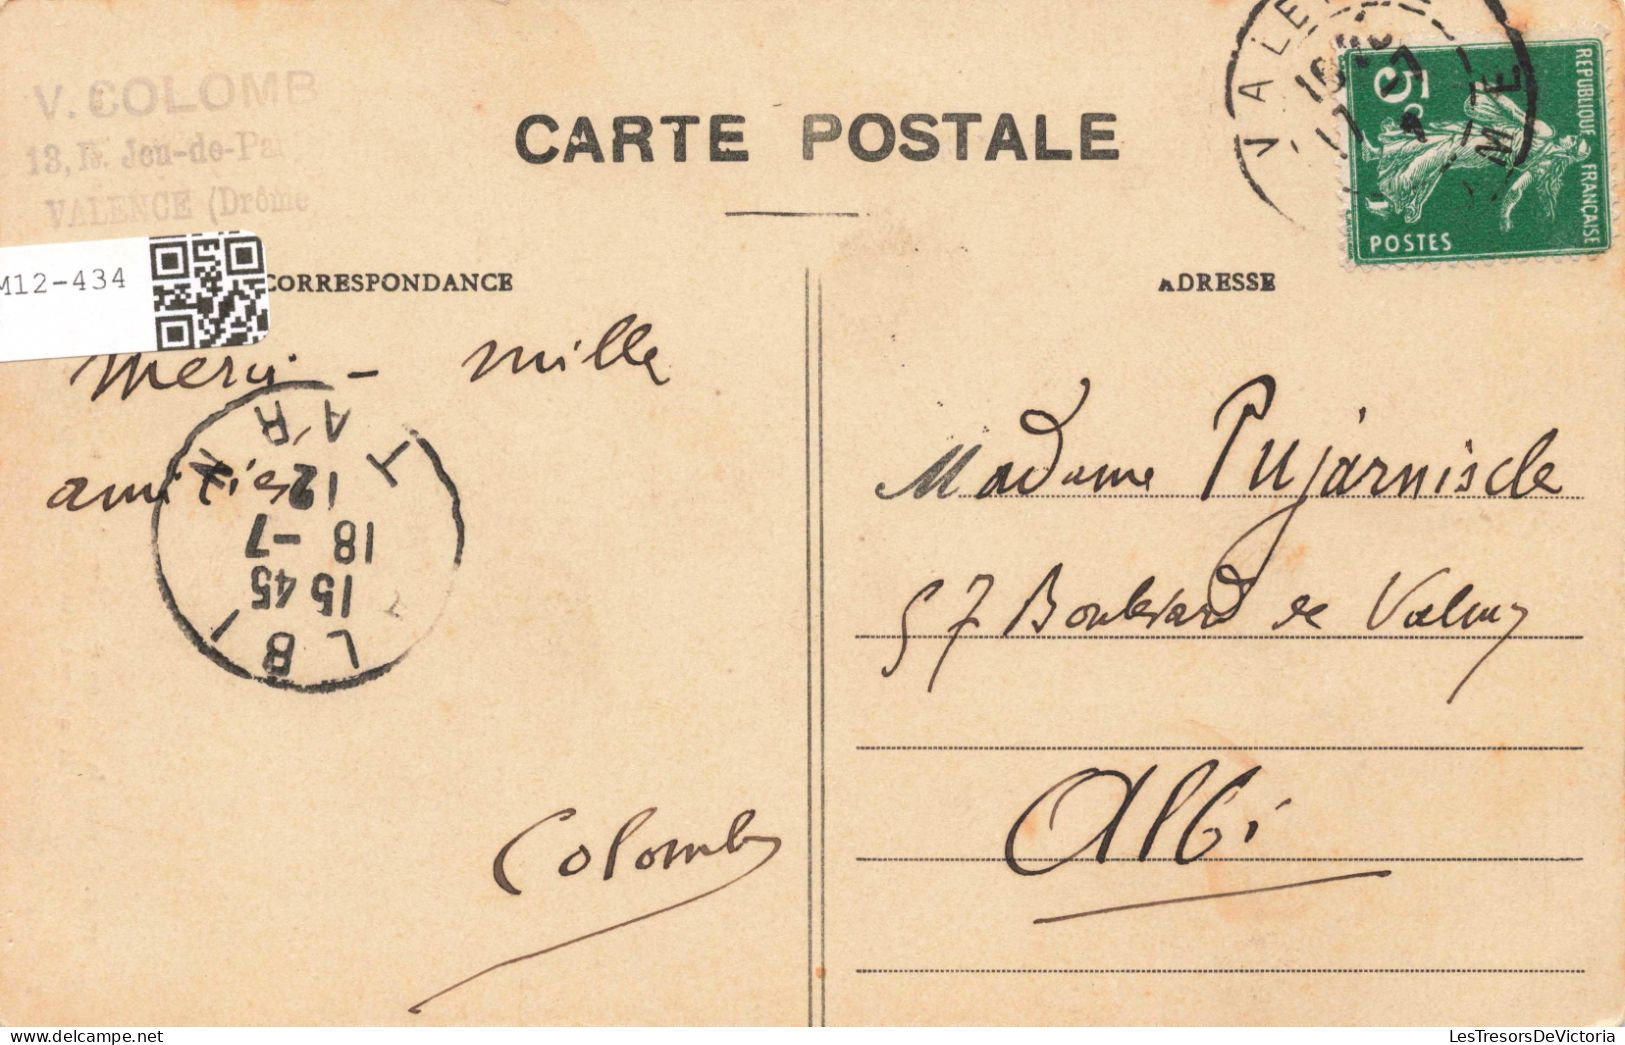 V. COLOMB
13, Jeu-de-
VALENCE (Drôme
CARTE POSTALE
VALE
5c
REPUBLIQUE FRANÇAISE
POSTES
M12-434
CORRESPONDANCE
ADRESSE
Merci - mille
amitiés
Colomb
Madame Pujarniscle
57 Boulevard de Valmy
Albi
LBI T
AR
15 45
18 -7
12
LesTresorsDeVictoria